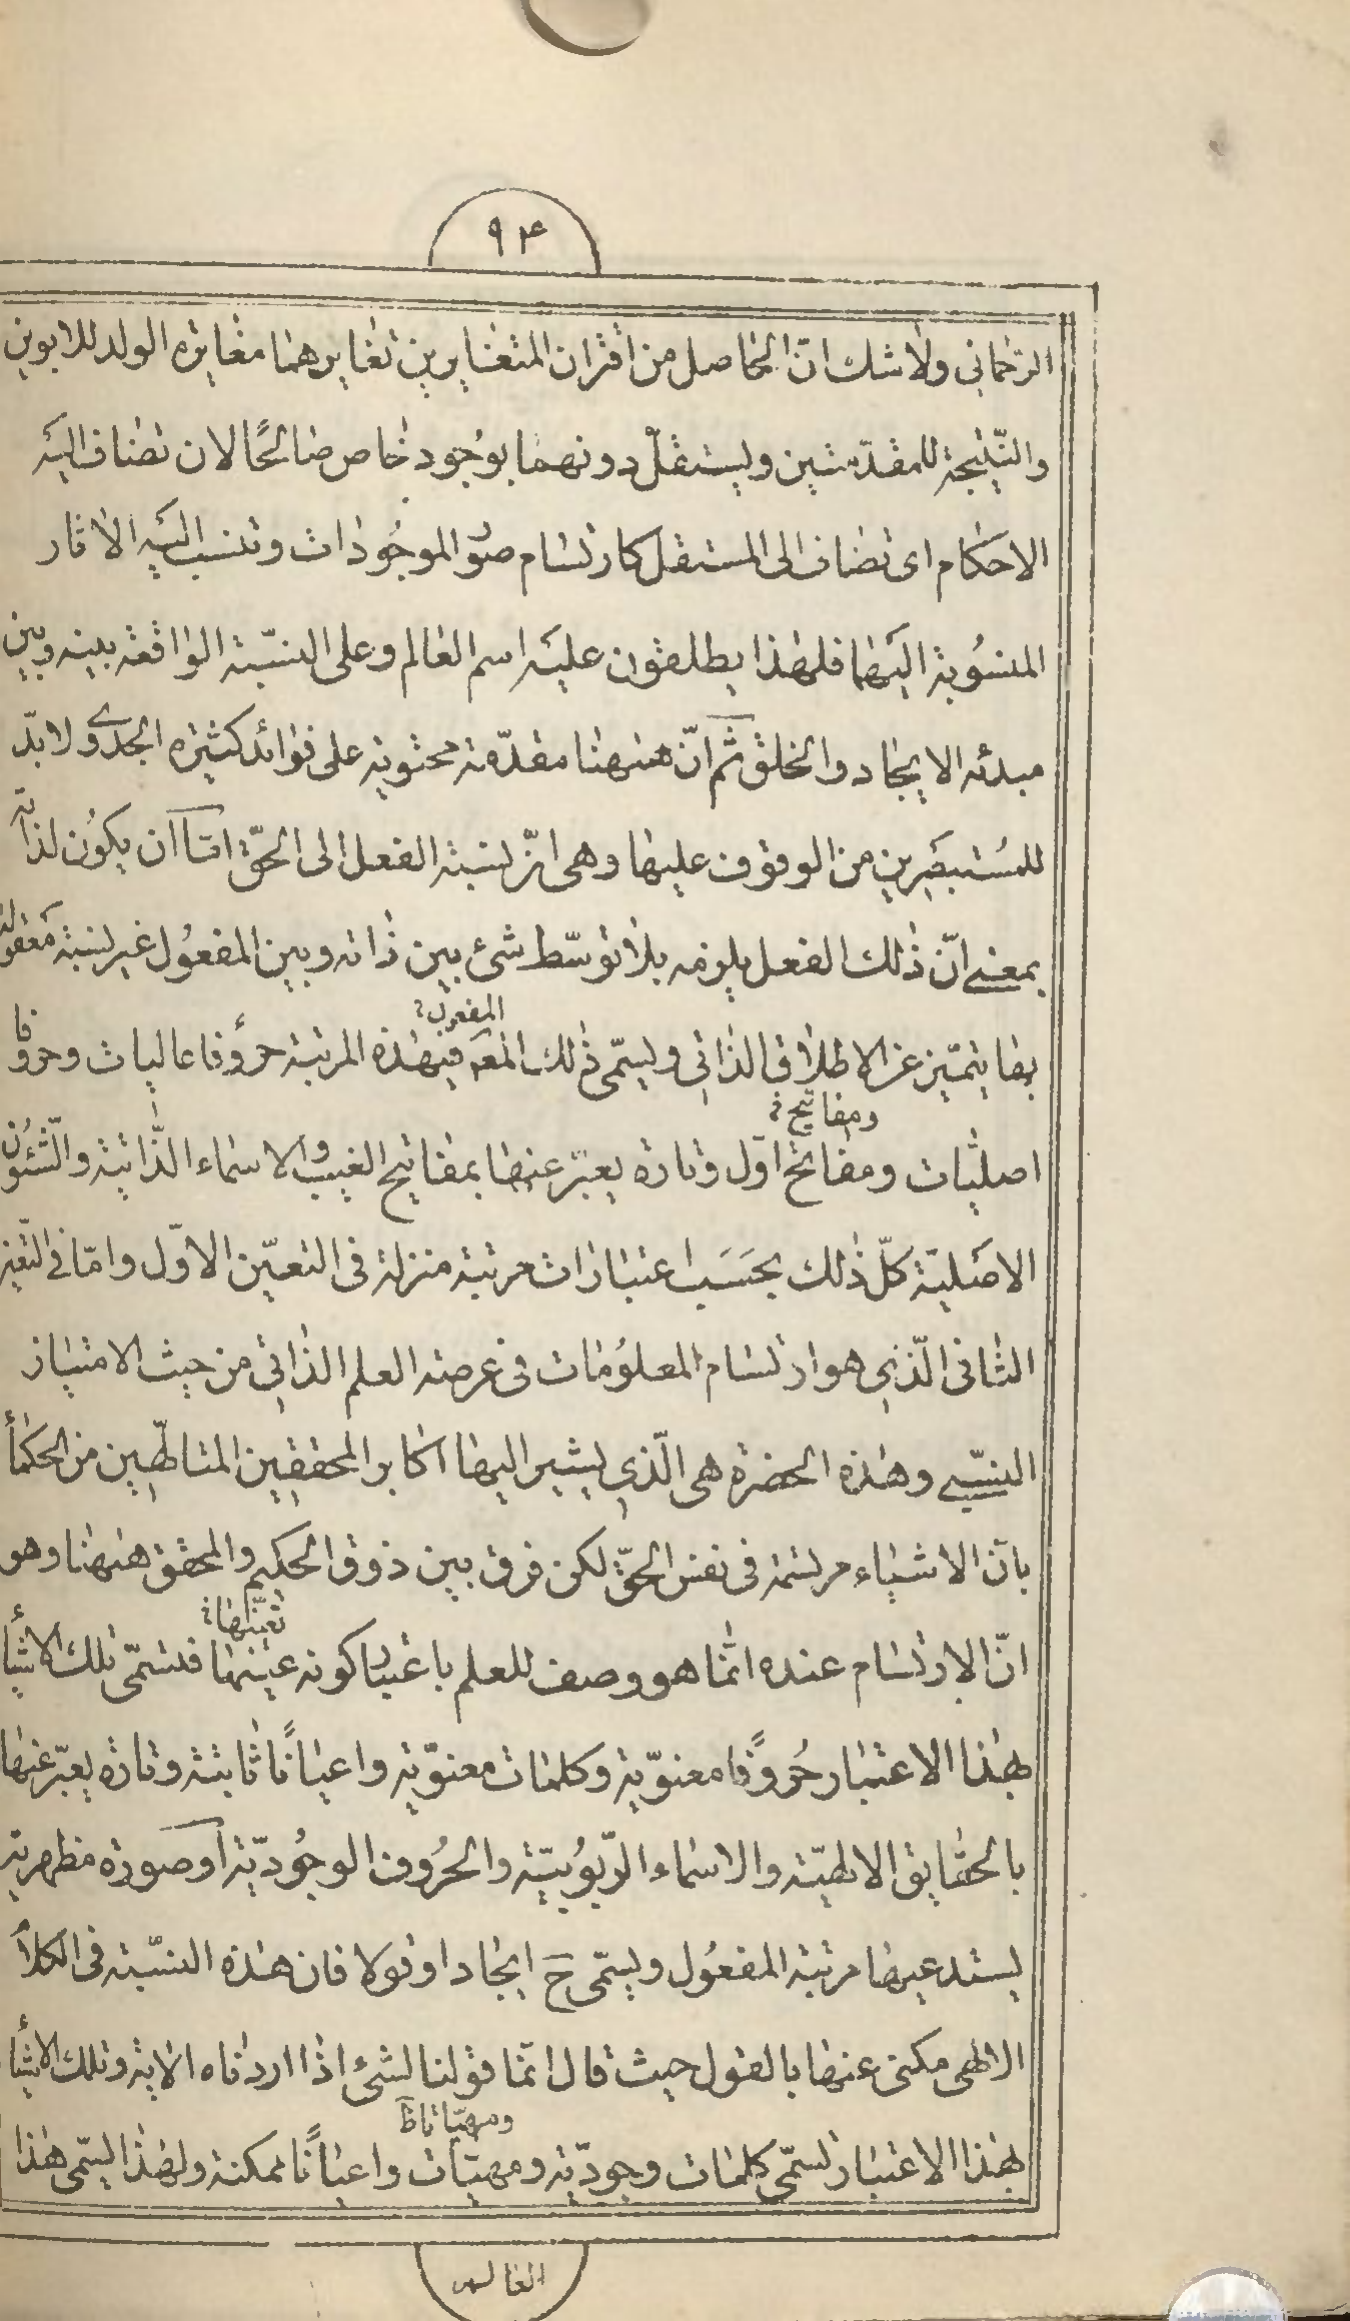 ۹۴
الرحمانی ولا شك انّ الحاصل من اقتران المتغایرین تغایرهما مغایرة الولد للابوین
والنّتیجة للمقدّمتین ویستقلّ دونهما بوجود خاص صالحًا لان تضاف الیه
الاحکام ای تضاف الی المستقل کارتسام صور الموجودات وتنسب الیه الآثار
المنسوبة الیها فلهذا یطلقون علیه اسم العالم وعلی النسبة الواقعة بینه وبین
مبدئه الایجاد والخلق ثمّ انّ ههنا مقدّمة محتویة علی فوائد کثیرة الجدوی ولا بدّ
للمستبصرین من الوقوف علیها وهی انّ نسبة الفعل الی الحقّ امّا ان یکون لذاته
بمعنی انّ ذلك الفعل یلزمه بلا توسّط شیء بین ذاته وبین المفعول غیر نسبة معقولة
المفعول؟
بها یتمیّز عن الاطلاق الذاتی ویسمّی ذلك المعه فی هذه المرتبة حروفا عالیات وحروفا
ومفاتیح؟
اصلیات ومفاتح اول وتارة یعبّر عنها بمفاتیح الغیب والاسماء الذّاتیة والشّئون
الاصلیة کلّ ذلك بحسب اعتبارات مرتبة منزلة فی التعیّن الاوّل وامّا فی التعین
الثانی الّذی هو ارتسام المعلومات فی عرصة العلم الذاتی من حیث الامتیاز
النسبی وهذه الحضرة هی الّذی یشیر الیها اکابر المحققین المتالّهین من الحکماء
بانّ الاشیاء مرتسمة فی نفس الحقّ لکن فرق بین ذوق الحکیم والمحقق ههنا وهو
تعینها؟
انّ الارتسام عنده انّما هو وصف للعلم باعتبار کونه عینها فتسمّی تلك الاشیاء
بهذا الاعتبار حروفًا معنویّة وکلمات معنویّة واعیانًا ثابتة وتارة یعبّر عنها
بالحقایق الالهیّة والاسماء الرّبوبیّة والحروف الوجودیّة او صورة مظهریة
یستدعیها مرتبة المفعول ویسمّی ح ایجادا وقولا فان هذه النسبة فی الکلام
الالهی مکنی عنها بالقول حیث قال انّما قولنا لشیء اذا اردناه الآیة وتلك الاشیاء
ومهیّاتا ظ
بهذا الاعتبار تسمّی کلمات وجودیّة ومهیّات واعیانًا ممکنة ولهذا یسمّی هذا
العالم